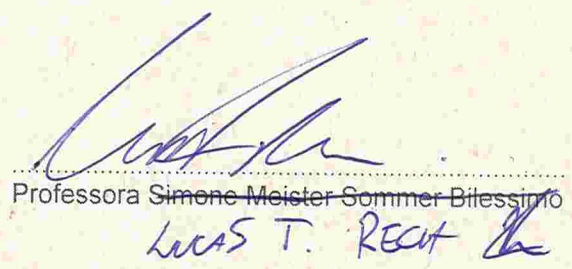 Professora Simone Meister Sommer Bilessimo
LUCAS T. RECH